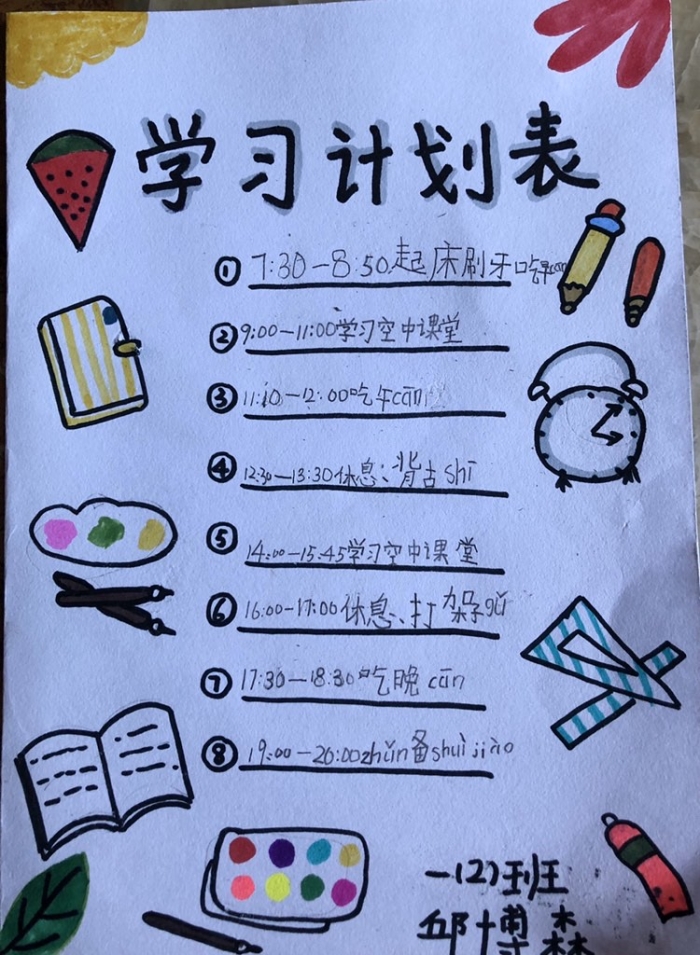 学习计划表
① 7:30—8:50起床刷牙吃早cān
② 9:00—11:00学习空中课堂
③ 11:10—12:00吃午cān
④ 12:30—13:30休息、背古shī
⑤ 14:00—15:45学习空中课堂
⑥ 16:00-17:00休息、打架子gǔ
⑦ 17:30—18:30吃晚cān
⑧ 19:00—20:00zhǔn备shuì jiào
一(2)班
邱博森